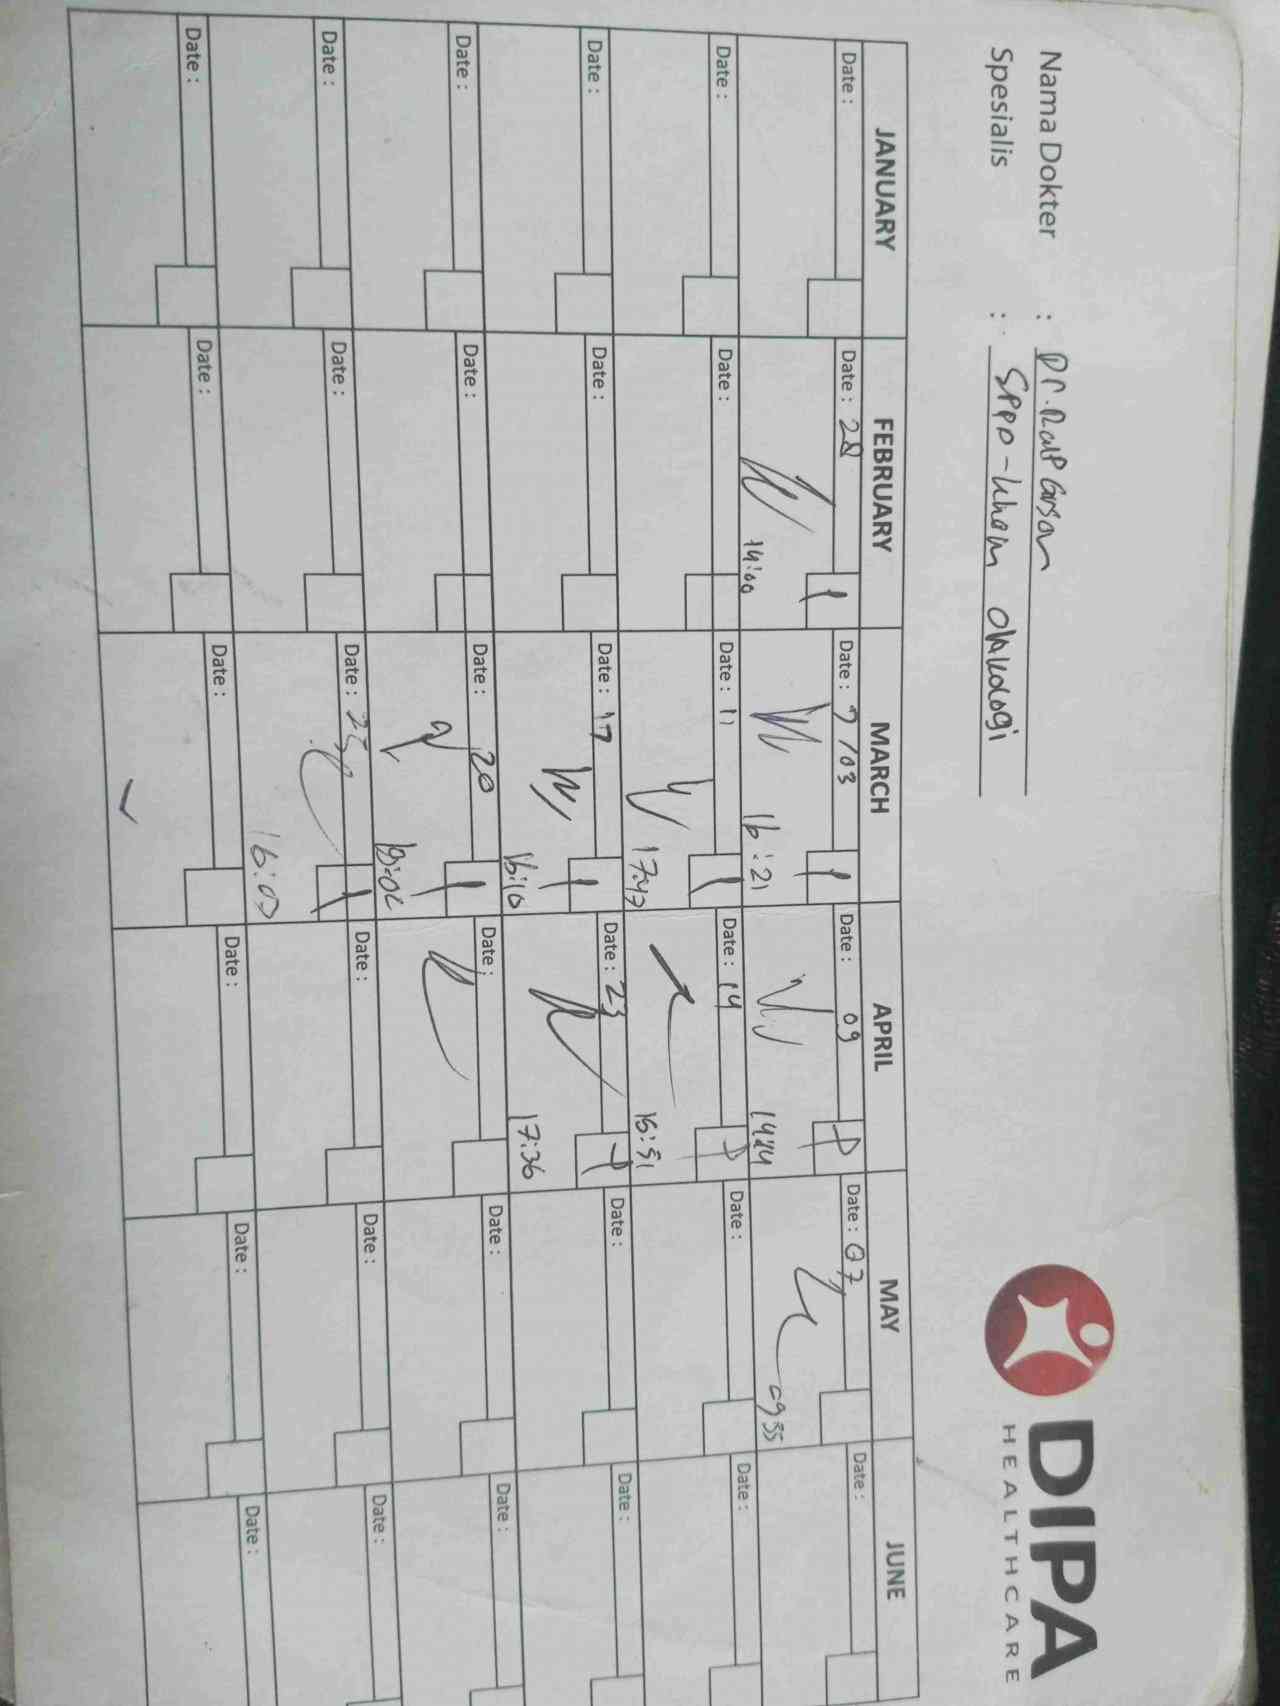 DIPA
HEALTHCARE
Nama Dokter :
Spesialis : SPPD - Khom Onkologi
JANUARY FEBRUARY MARCH APRIL MAY JUNE
Date : Date : 28 Date : 7/03 Date : 09 Date : 07 Date :
14:00 16:21 14:24 09 35
Date : Date : Date : 11 Date : 14 Date : Date :
17:47 15:51
Date : Date : Date : 17 Date : 23 Date : Date :
16:10 17:36
Date : Date : Date : 20 Date : Date : Date :
Date : Date : Date : Date : Date : Date :
16:07
Date : Date : Date : Date : Date : Date :